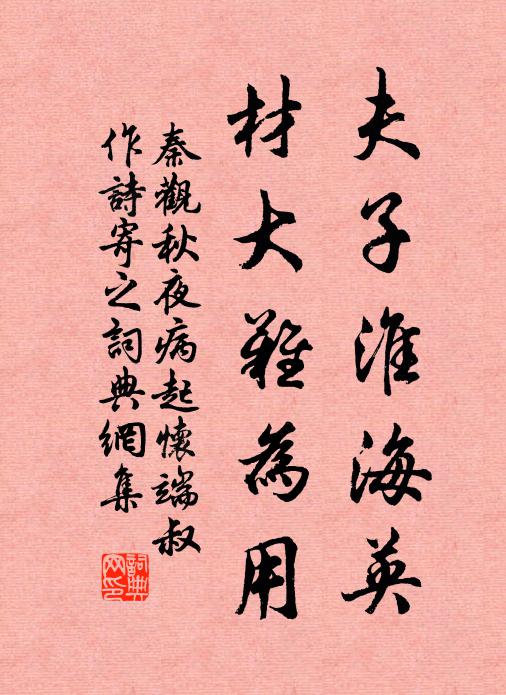 夫子淮海英
材大難為用
秦觀秋夜病起懷端叔
作詩寄之詞典網集
詞典
网印